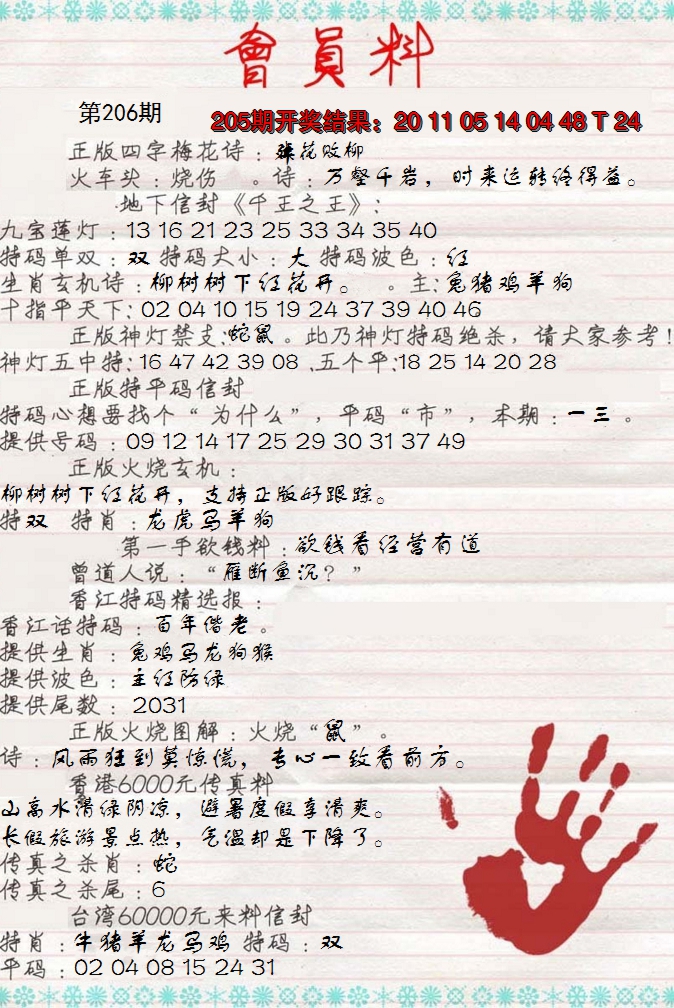 會員料
第206期
205期开奖结果：20 11 05 14 04 48 T 24
正版四字梅花诗：残花败柳
火车头：烧伤 。诗：万壑千岩，时来运转终得益。
地下信封《千王之王》：
九宝莲灯：13 16 21 23 25 33 34 35 40
特码单双：双 特码大小：大 特码波色：红
生肖玄机诗：柳树树下红花开。 。主：兔猪鸡羊狗
十指平天下：02 04 10 15 19 24 37 39 40 46
正版神灯禁支：蛇鼠。此乃神灯特码绝杀，请大家参考！
神灯五中特：16 47 42 39 08 、五个平：18 25 14 20 28
正版特平码信封
特码心想要找个“为什么”，平码“市”，本期：一三。
提供号码：09 12 14 17 25 29 30 31 37 49
正版火烧玄机：
柳树树下红花开，支持正版好跟踪。
特双 特肖：龙虎马羊狗
第一手欲钱料：欲钱看经营有道
曾道人说：“雁断鱼沉？”
香江特码精选报：
香江话特码：百年偕老。
提供生肖：兔鸡马龙狗猴
提供波色：主红防绿
提供尾数：2031
正版火烧图解：火烧“鼠”。
诗：风雨狂到莫惊慌，专心一致看前方。
香港6000元传真料
山高水清绿阴凉，避暑度假享清爽。
长假旅游景点热，气温却是下降了。
传真之杀肖：蛇
传真之杀尾：6
台湾60000元来料信封
特肖：牛猪羊龙马鸡 特码：双
平码：02 04 08 15 24 31